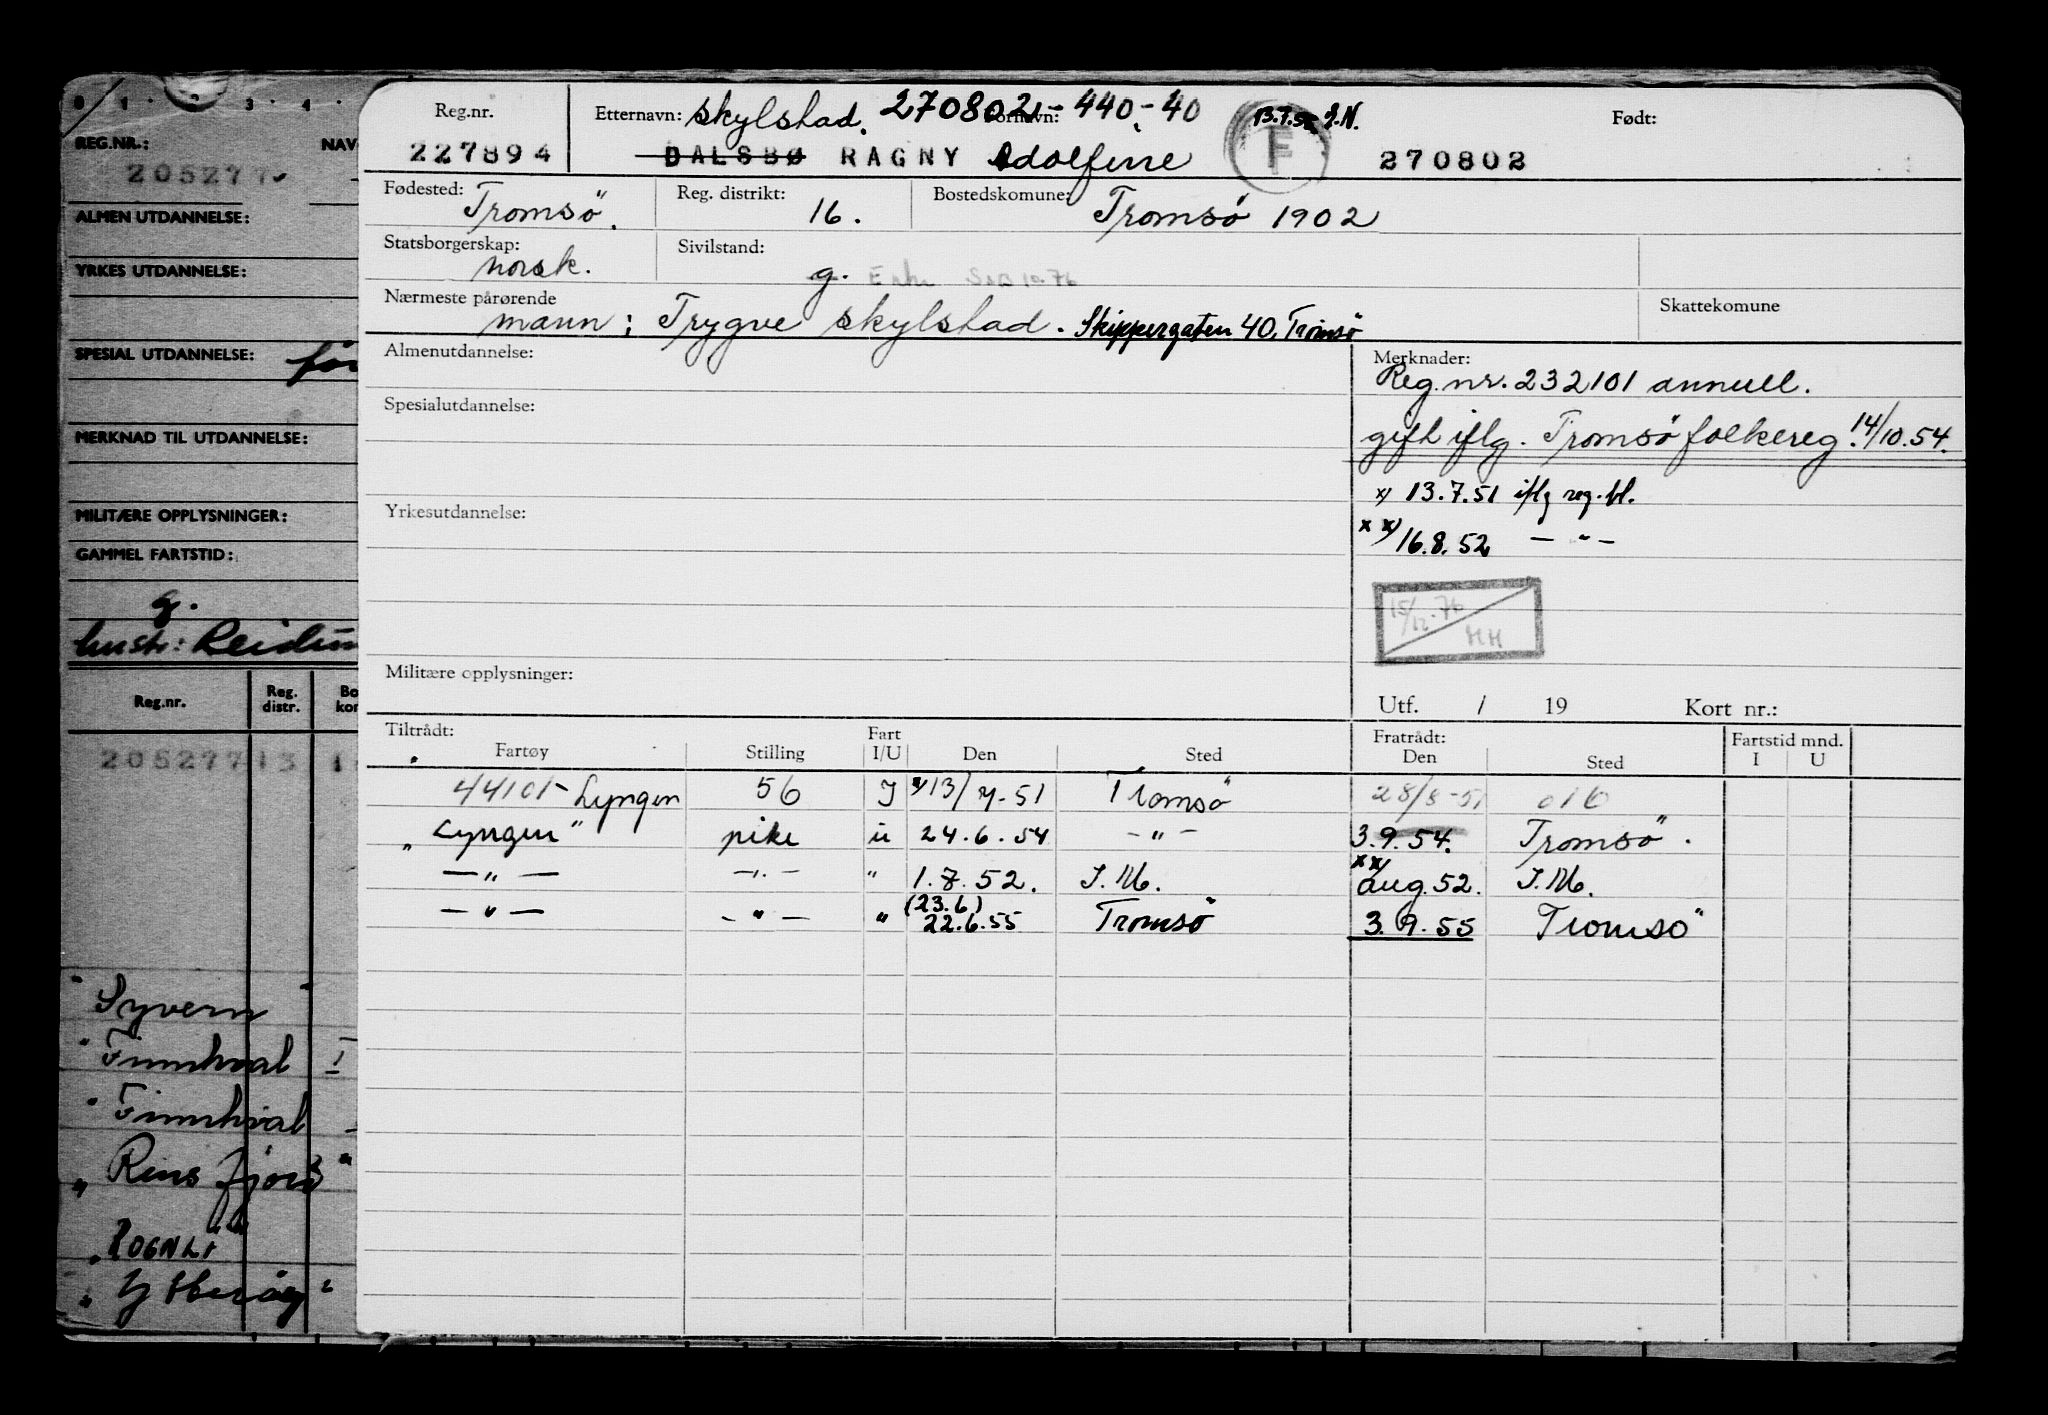 0 1 2 3 4
REG.NR.: NAV
205277
ALMEN UTDANNELSE:
YRKES UTDANNELSE:
SPESIAL UTDANNELSE: för
MERKNAD TIL UTDANNELSE:
MILITÆRE OPPLYSNINGER:
GAMMEL FARTSTID:
g.
hustr: Reidun
Reg.nr. Reg. distr. Bo kor
205277 13 1
" Syvern "
" Finnhval I
" Finnhval
" Rens fjord "
" ROGNLI "
" Ytterøy "
Reg.nr. Etternavn: Skylstad. 270802 - 440 - 40 Fornavn: 13.7.51 Født:
227894 DALSBØ RAGNY Adolfine F 270802
Fødested: Tromsö. Reg. distrikt: 16. Bostedskomune: Tromsö 1902
Statsborgerskap: norsk. Sivilstand: g. Enke 10.76
Nærmeste pårørende Skattekomune
mann: Trygve Skylstad. Skippergaten 40, Tromsö
Almenutdannelse: Merknader:
Reg.nr. 232101 annull.
Spesialutdannelse: gift iflg. Tromsö folkereg. 14/10.54.
x/ 13.7.51 iflg reg.bl.
Yrkesutdannelse:
xx/ 16.8.52 — " —
15/12.76 HH
Militære opplysninger:
Utf. / 19 Kort nr.:
Tiltrådt: Fartøy Stilling Fart I/U Den Sted Fratrådt: Den Sted Fartstid mnd. I U
44101 - Lyngen 56 I x/13/7-51 Tromsö 28/8-51 016
" Lyngen " pike u 24.6.54 — " — 3.9.54. Tromsö.
— " — — " — " 1.7.52. I.M. xx/ aug.52. I.M.
— " — — " — " (23.6) 22.6.55 Tromsö 3.9.55 Tromsö